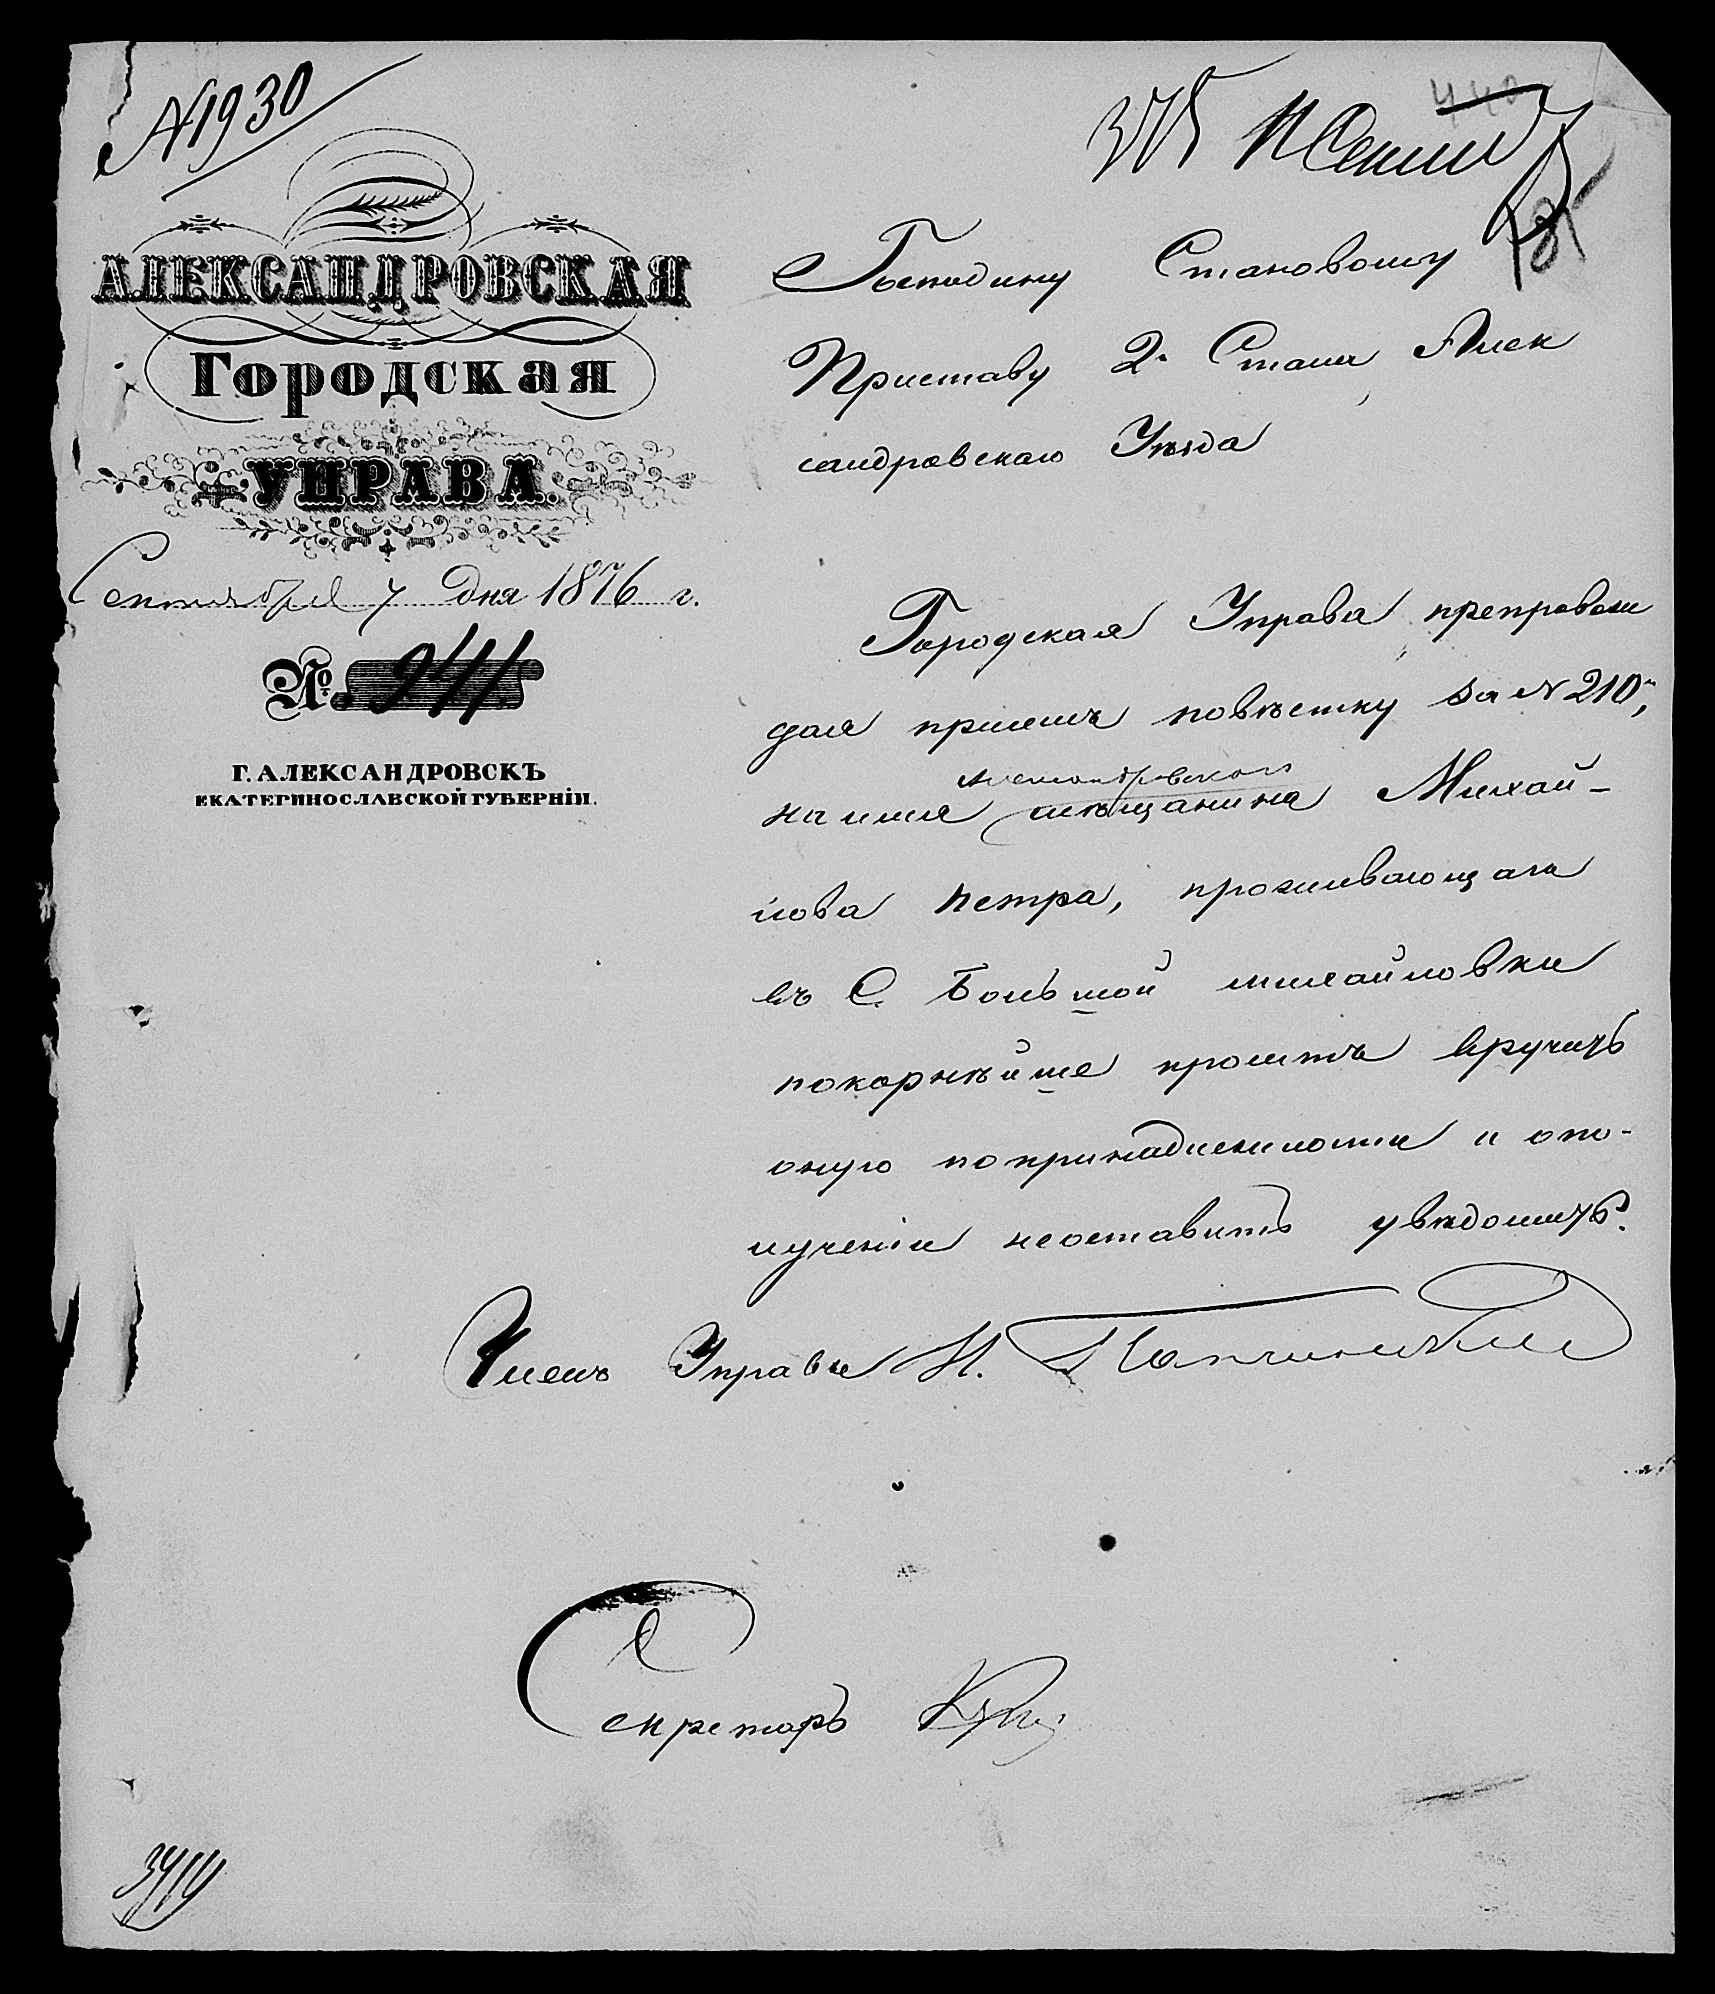 № 1930
375 11 Сент
АЛЕКСАНДРОВСКАЯ
Городская
УПРАВА.
Сентября 7 дня 1876 г.
№ 241.
Г. АЛЕКСАНДРОВСКЪ
ЕКАТЕРИНОСЛАВСКОЙ ГУБЕРНІИ.
Господину Становому
Приставу 2. Стана Алек
сандровскаго Уѣзда
Городская Управа препровож
дая при семъ повѣстку за № 210,
Александровскаго
на имя мѣщанина Михай-
лова Петра, проживающаго
въ С. Большой михайловки
покорнѣйше проситъ вручить
оную по принадлежности и опо-
лученіи неоставить увѣдомить.
Членъ Управы Н.
Секретарь